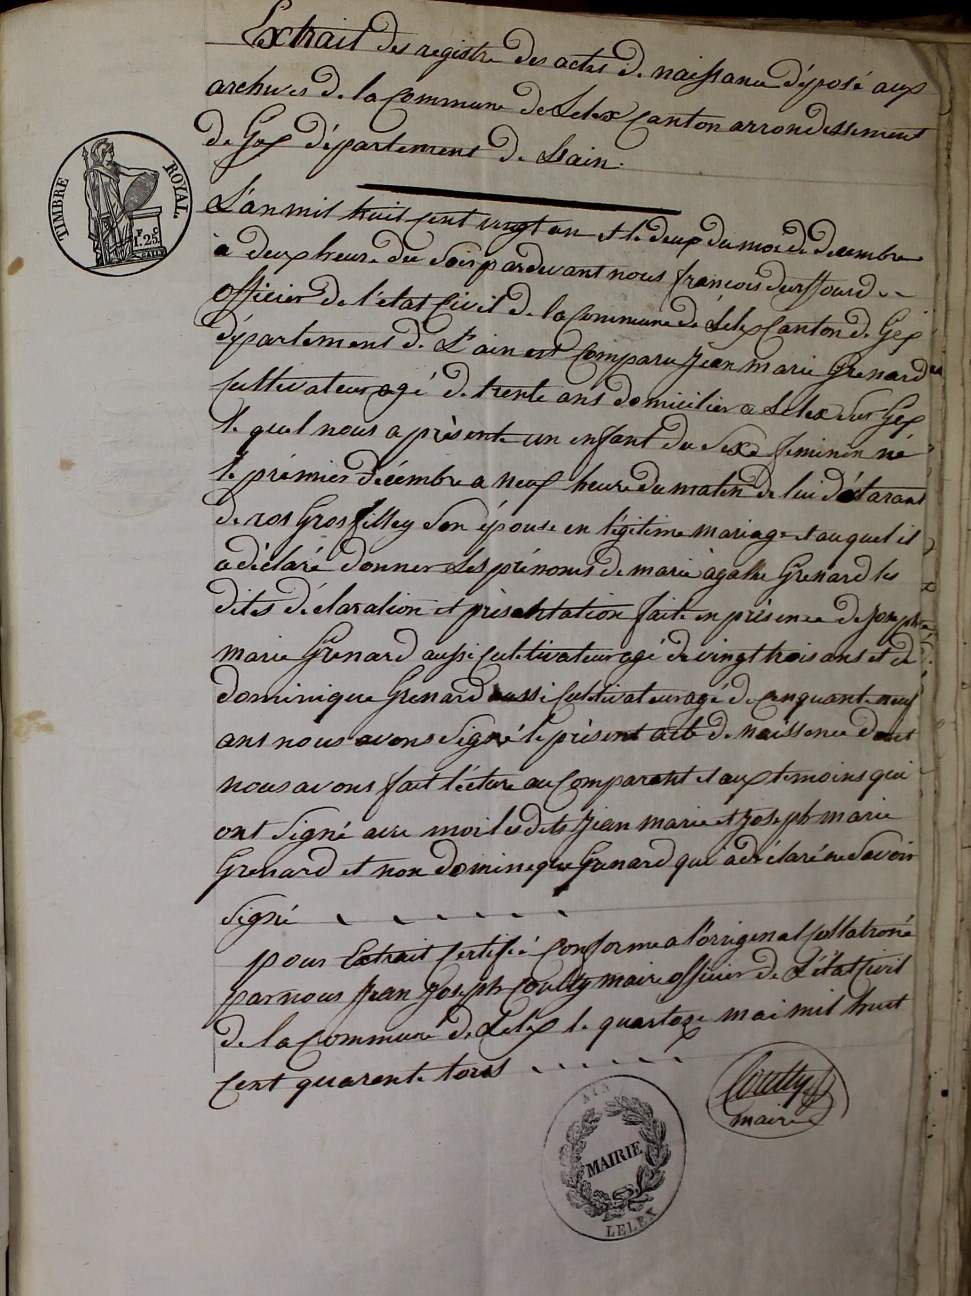 Extrait des registre des actes de naissance déposé aux
archives de la commune de Lelex Canton arrondissement
de Gex département de Lain.
TIMBRE ROYAL.
1.F 25.C
L'an mil huit cent vingt un et le deux du moi de décembre
à deux heure du soir pardevant nous françois
officier de l'état Civil de la Commune de Lelex Canton de Gex
département de L'ain est Comparu Jean marie Grenard
Cultivateur agé de trente ans domicilier a Lelex sur Gex
le quel nous a présenté un enfant du sexe feminin né
le prémier décembre a neuf heure du maten de lui déclarant
de ros Grosfilley son épouse en légitime mariage et auquel il
a déclaré donner les prénoms de marie agathe Grenard les
dites déclaration et présentation faite en présence de Joseph
marie Grenard aussi cultivateur agé de vingt trois ans et de
dominique Grenard aussi Cultivateur age de cenquante neuf
ans nous avons signé le présent acte de naissence dont
nous avons fait lécture au Comparant et aux temoins qui
ont signé avec moi lesdits Jean marie et Joseph marie
Grenard et non domineque Grenard qui a déclaré ne savoir
signé
pour Extrait Certifié Conforme a l'origenal Collationé
par nous Jean Joseph Coutty maire officier de L'état Civil
de la Commune de Lelex le quatoze mai mil huit
Cent quarente tois
Coutty
maire
AIN
MAIRIE
LELEX